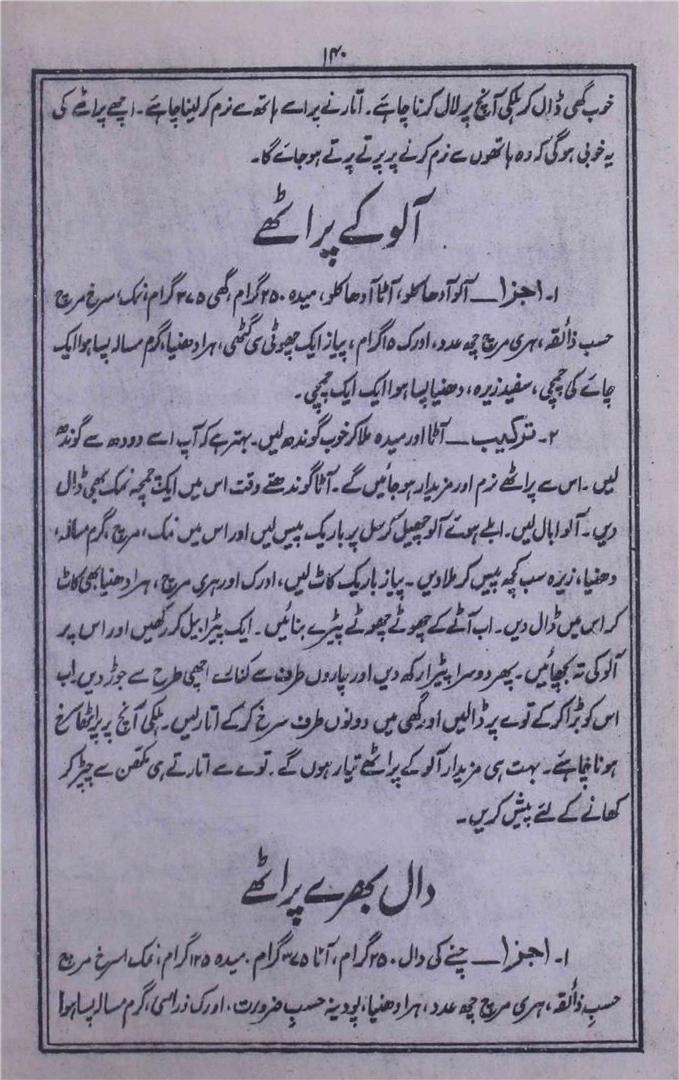 ۱۴۰
خوب گھی ڈال کر ہلکی آنچ پر لال کرنا چاہئے۔ اتارنے پر اسے ہاتھ سے نرم کر لینا چاہئے۔ اچھے پراٹھے کی
یہ خوبی ہوگی کہ وہ ہاتھوں سے نرم کرنے پر پرتے پرتے ہو جائے گا۔
آلو کے پراٹھے
۱۔ اجزا ــ آلو آدھا کلو، آٹا آدھا کلو، میدہ ۲۵۰ گرام، گھی ۳۷۵ گرام، نمک سرخ مرچ
حسب ذائقہ، ہری مرچ چھ عدد، ادرک ۱۵ گرام، پیاز ایک چھوٹی سی گٹھی، ہرا دھنیا، گرم مسالہ پسا ہوا ایک
چائے کی چمچی، سفید زیرہ، دھنیا پسا ہوا ایک ایک چمچی۔
۲۔ ترکیب ــ آٹا اور میدہ ملا کر خوب گوندھ لیں۔ بہتر ہے کہ آپ اسے دودھ سے گوندھ
لیں۔ اس سے پراٹھے نرم اور مزیدار ہو جائیں گے۔ آٹا گوندھتے وقت اس میں ایک چمچہ نمک بھی ڈال
دیں۔ آلو ابال لیں۔ ابلے ہوئے آلو چھیل کر سل پر باریک پیس لیں اور اس میں نمک، مرچ، گرم مسالہ،
دھنیا، زیرہ سب کچھ پیس کر ملا دیں۔ پیاز باریک کاٹ لیں، ادرک اور ہری مرچ، ہرا دھنیا بھی کاٹ
کر اس میں ڈال دیں۔ اب آٹے کے چھوٹے چھوٹے پیڑے بنائیں۔ ایک پیڑا بیل کر رکھیں اور اس پر
آلو کی تہ بچھائیں۔ پھر دوسرا پیڑا رکھ دیں اور چاروں طرف سے کنارے اچھی طرح سے جوڑ دیں۔ اب
اس کو بڑا کر کے توے پر ڈالیں اور گھی میں دونوں طرف سرخ کر کے اتار لیں۔ ہلکی آنچ پر پراٹھا سرخ
ہونا چاہئے۔ بہت ہی مزیدار آلو کے پراٹھے تیار ہوں گے۔ توے سے اتارتے ہی مکھن سے چپڑ کر
کھانے کے لئے پیش کریں۔
دال بھرے پراٹھے
۱۔ اجزا ــ چنے کی دال ۲۵۰ گرام، آٹا ۳۷۵ گرام، میدہ ۱۲۵ گرام، نمک سرخ مرچ
حسبِ ذائقہ، ہری مرچ چھ عدد، ہرا دھنیا، پودینہ حسبِ ضرورت، ادرک ذرا سی، گرم مسالہ پسا ہوا